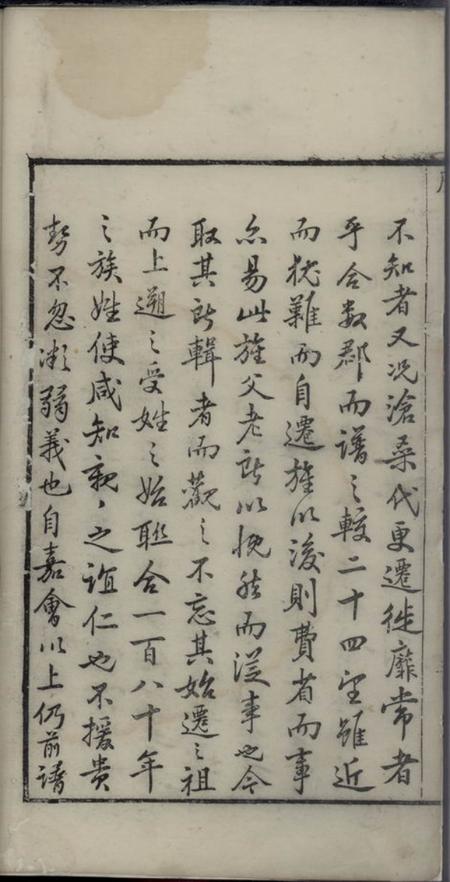 不知者又况滄桑代更遷徙靡常者
乎合数郡而譜之較二十四望雖近
而犹難而自遷旌以後則費省而事
亦易此旌父老所以慨然而從事也今
取其所輯者而觀之不忘其始遷之祖
而上遡之受姓之始聯合一百八十年
之族姓使咸知親〻之誼仁也不援貴
勢不忽漸弱義也自嘉會以上仍前譜